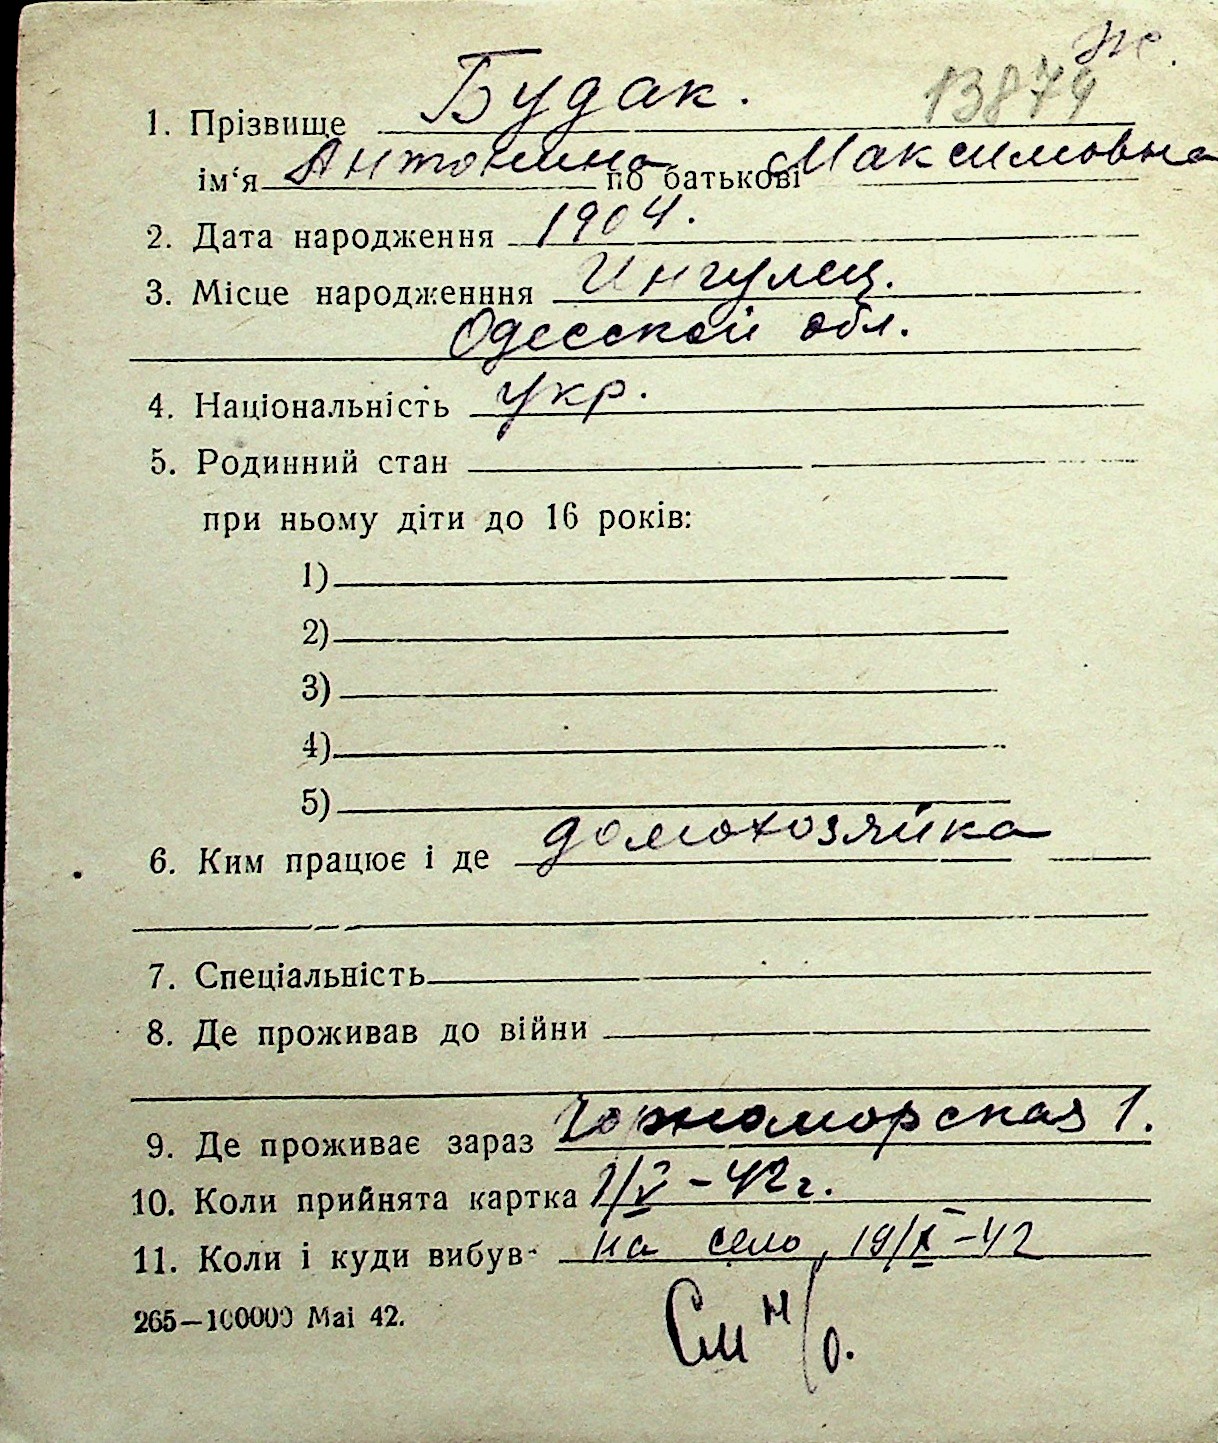 Ж.
13879
1. Прізвище Будак.
ім‘я Антонина по батькові Максимовна
2. Дата народження 1904.
3. Місце народженння Ингулец.
Одесской обл.
4. Національність укр.
5. Родинний стан
при ньому діти до 16 років:
1)
2)
3)
4)
5)
6. Ким працює і де домохозяйка
7. Спеціальність
8. Де проживав до війни
9. Де проживає зараз Чорноморская 1.
10. Коли прийнята картка 1/V-42 г.
11. Коли і куди вибув на село, 19/X-42
См н/о.
265—100000 Mai 42.